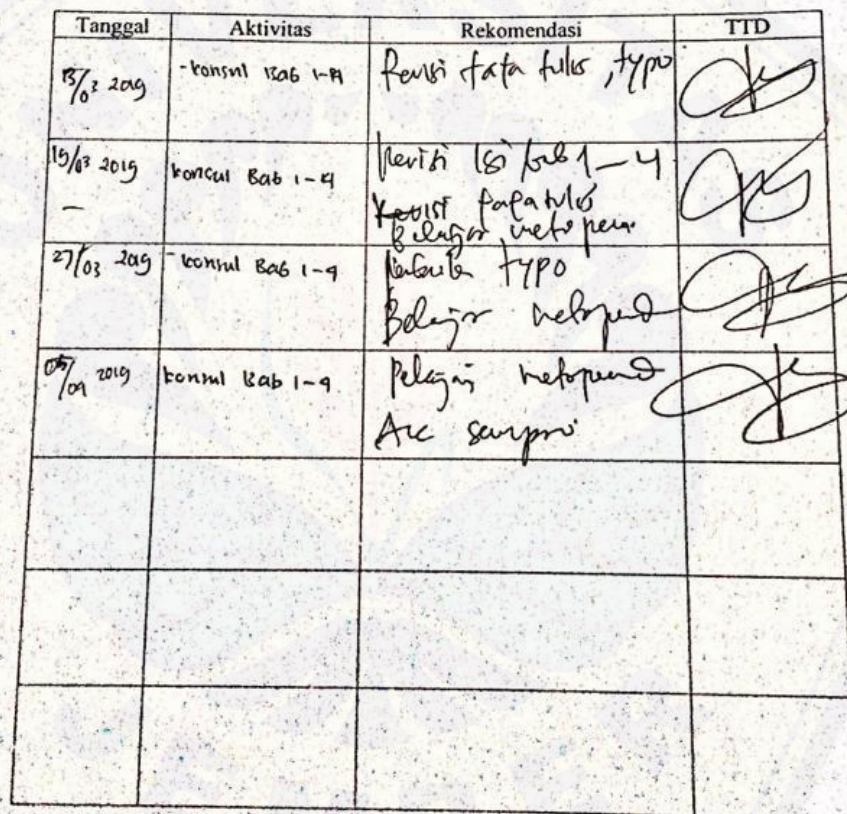 Tanggal Aktivitas Rekomendasi TTD
13/03 2019 - konsul Bab 1-4 Revisi tata tulis, typo
19/03 2019 konsul Bab 1-4 Revisi isi bab 1-4
Revisi tata tulis
Belajar metopen
27/03 2019 - konsul Bab 1-4 typo
Belajar metopend
05/04 2019 konsul Bab 1-4 Pelajari metopend
Acc sempro